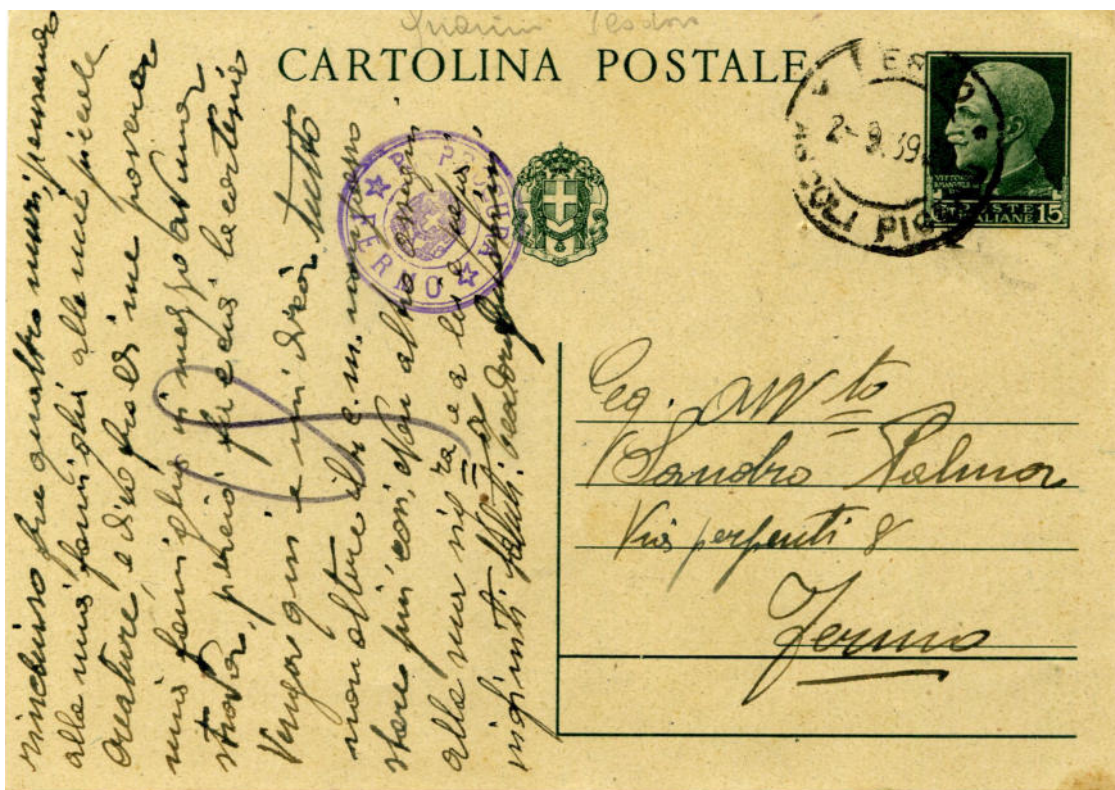 CARTOLINA POSTALE
R. PRETURA
FERMO
FERMO
2-9.39
ASCOLI PICENO
VITTORIO
EMANUELE
POSTE
ITALIANE 15
Eg. Avv to
Sandro Palma
Via perpenti 8
Fermo
rinchiuso fra quattro muri, pensando
alla mia famiglia alle mie piccole
creature, e dico fra di me povera
mia famiglia in mezzo a una
strada, perciò fa e cui la cortesia
Venga qui e mi dica tutto
non oltre il 4 c. m. non posso
stare più così, Non altro
alla sua sig ra e a lei
infiniti saluti